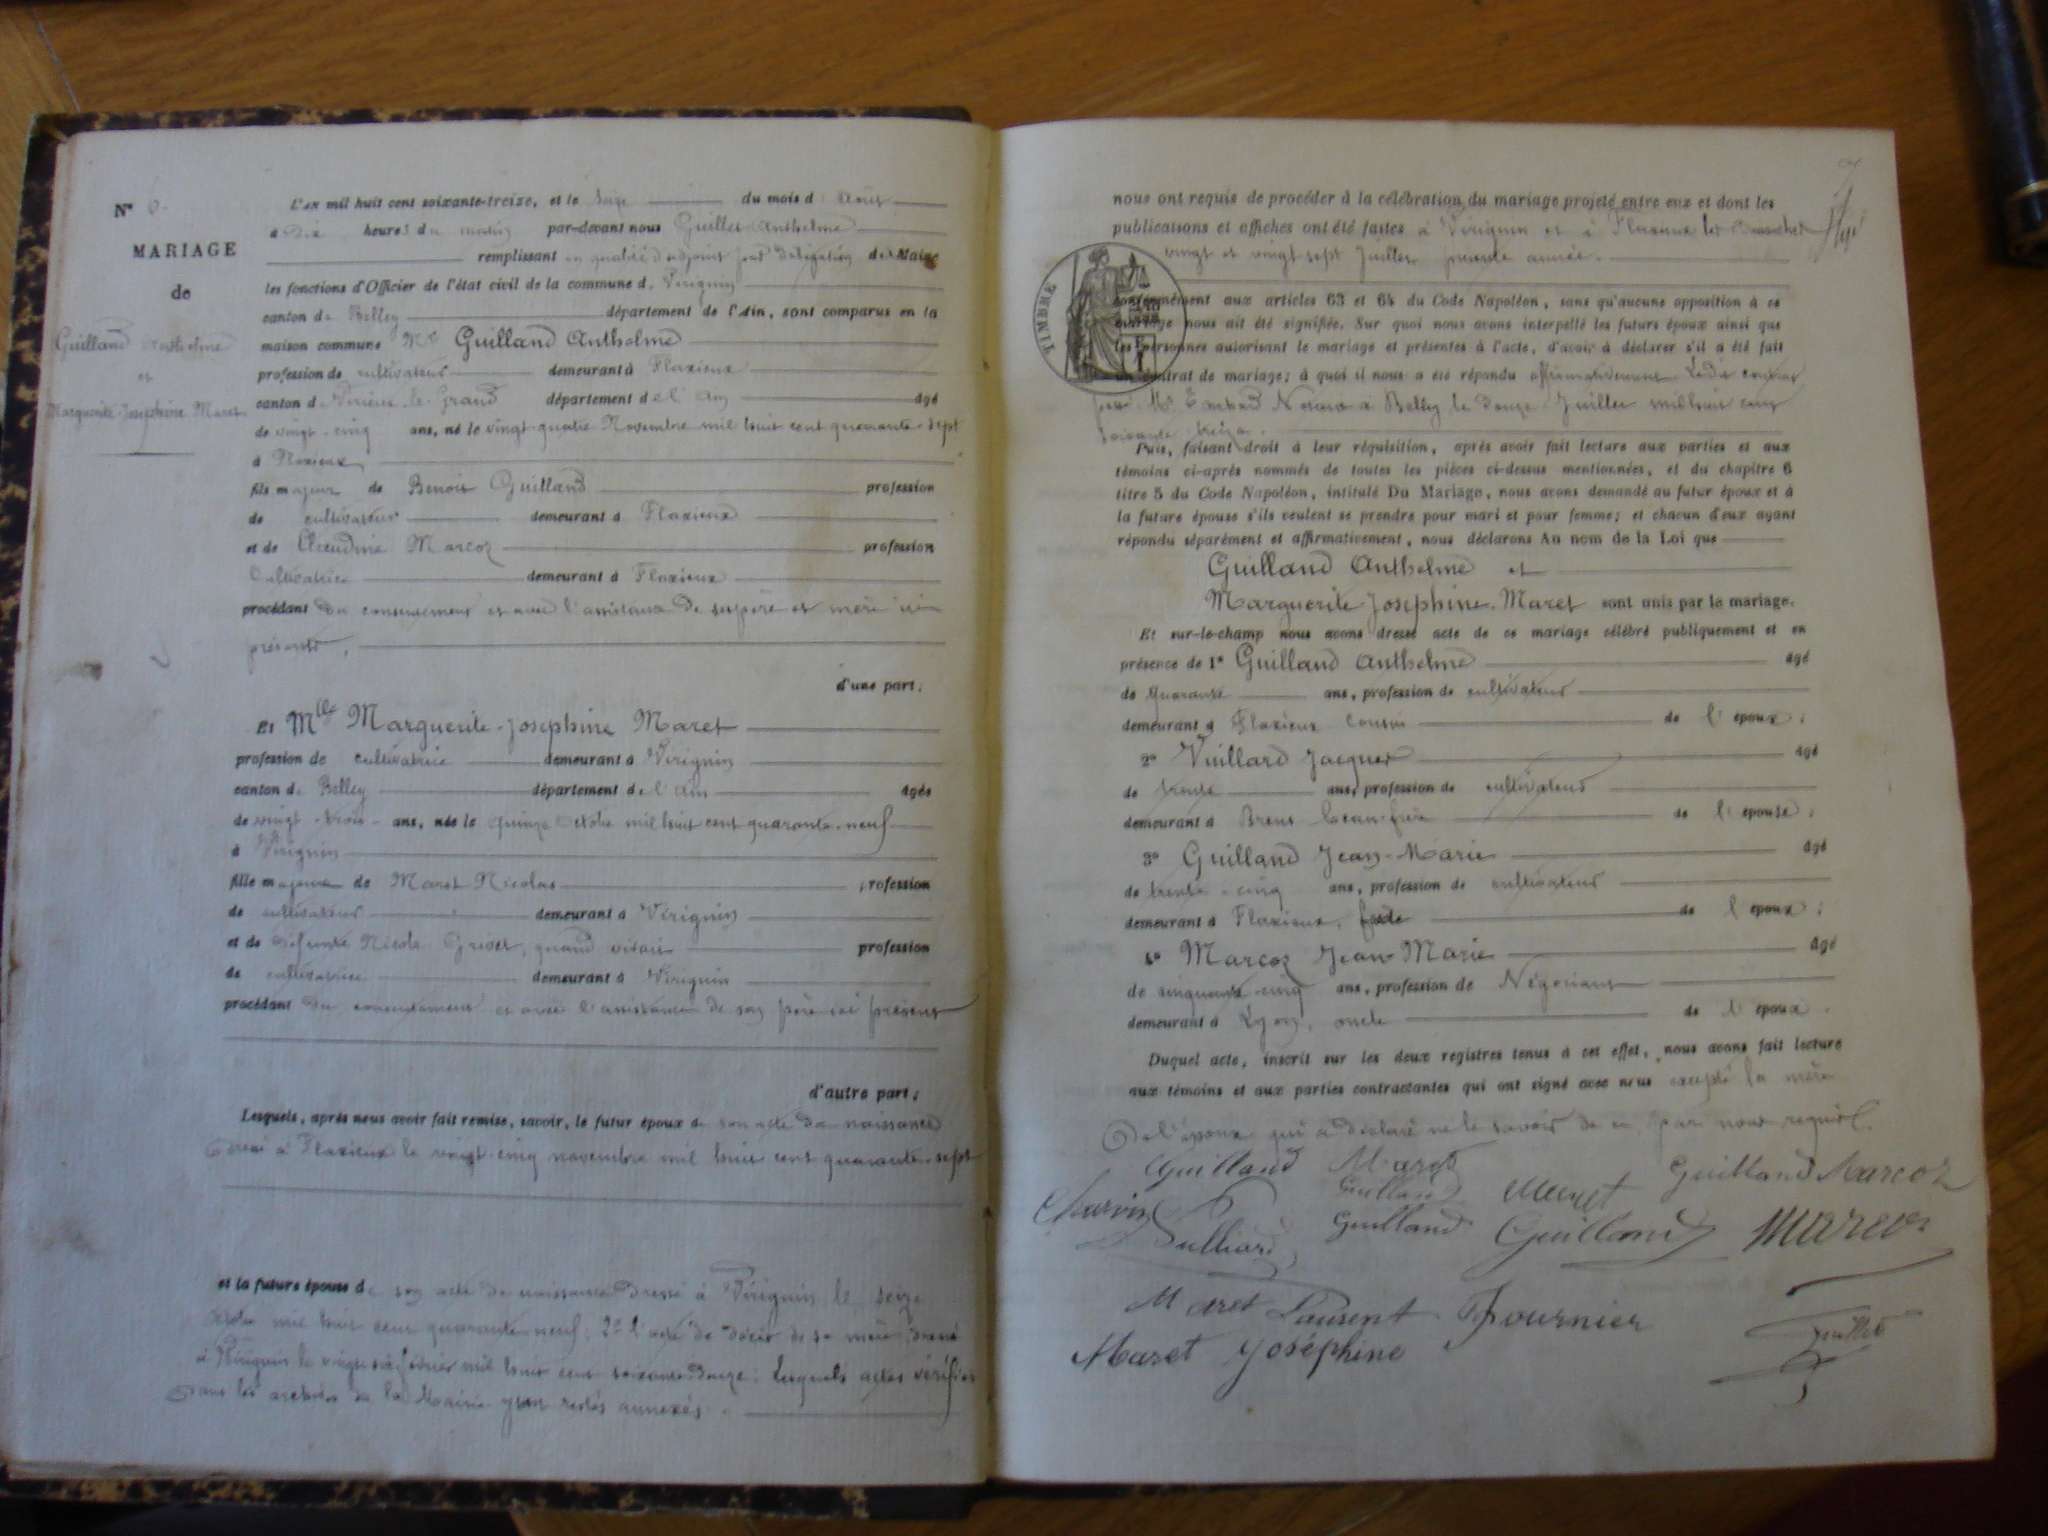 N° 6.
MARIAGE
de
Guilland Anthelme
et
Marguerite-Josephine Maret
L'AN mil huit cent soixante-treize, et le seize du mois d'Août
à dix heures du matin par-devant nous Guillet Anthelme
remplissant en qualité d'adjoint par délégation du Maire
les fonctions d'Officier de l'état civil de la commune de Virignin
canton de Belley département de l'Ain, sont comparus en la
maison commune Mr Guilland Anthelme
profession de cultivateur demeurant à Flaxieux
canton de Virieu-le-Grand département de l'Ain âgé
de vingt-cinq ans, né le vingt-quatre Novembre mil huit cent quarante-sept
à Flaxieux
fils majeur de Benoit Guilland profession
de cultivateur demeurant à Flaxieux
et de Claudine Marcoz profession
Cultivatrice demeurant à Flaxieux
procédant du consentement et avec l'assistance de ses père et mère ici
présents,
d'une part;
Et Mlle Marguerite-Josephine Maret
profession de cultivatrice demeurant à Virignin
canton de Belley département de l'Ain âgée
de vingt-trois ans, née le quinze octobre mil huit cent quarante-neuf
à Virignin
fille majeure de Maret Nicolas profession
de cultivateur demeurant à Virignin
et de défunte Nicole quand vivait profession
de cultivatrice demeurant à Virignin
procédant du consentement et avec l'assistance de son père ici présent
d'autre part;
Lesquels, après nous avoir fait remise, savoir, le futur époux de son acte de naissance
dressé à Flaxieux le vingt-cinq novembre mil huit cent quarante-sept
et la future épouse de son acte de naissance dressé à Virignin le seize
octobre mil huit cent quarante-neuf; 2° l'acte de décès de sa mère dressé
à Virignin le vingt-six février mil huit cent soixante-douze: Lesquels actes vérifiés
dans les archives de la Mairie y sont restés annexés.
nous ont requis de procéder à la célébration du mariage projeté entre eux et dont les
publications et affiches ont été faites à Virignin et à Flaxieux les Dimanches
vingt et vingt-sept Juillet présente année.
TIMBRE
conformément aux articles 63 et 64 du Code Napoléon, sans qu'aucune opposition à ce
mariage nous ait été signifiée. Sur quoi nous avons interpellé les futurs époux ainsi que
les personnes autorisant le mariage et présentes à l'acte, d'avoir à déclarer s'il a été fait
un contrat de mariage; à quoi il nous a été répondu affirmativement. Ledit contrat
Me Notaire à Belley le douze Juillet mil huit cent
soixante-treize.
Puis, faisant droit à leur réquisition, après avoir fait lecture aux parties et aux
témoins ci-après nommés de toutes les pièces ci-dessus mentionnées, et du chapitre 6
titre 5 du Code Napoléon, intitulé Du Mariage, nous avons demandé au futur époux et à
la future épouse s'ils veulent se prendre pour mari et pour femme; et chacun d'eux ayant
répondu séparément et affirmativement, nous déclarons Au nom de la Loi que
Guilland Anthelme et
Marguerite Josephine Maret sont unis par le mariage.
Et sur-le-champ nous avons dressé acte de ce mariage célébré publiquement et en
présence de 1° Guilland Anthelme âgé
de quarante ans, profession de cultivateur
demeurant à Flaxieux Cousin de l'époux;
2° Vuillard Jacques âgé
de trente ans, profession de cultivateur
demeurant à Brens beau-frère de l'épouse;
3° Guilland Jean-Marie âgé
de trente-cinq ans, profession de cultivateur
demeurant à Flaxieux, de l'époux;
4° Marcoz Jean-Marie âgé
de cinquante-cinq ans, profession de Négociant
demeurant à Lyon, oncle de l'époux.
Duquel acte, inscrit sur les deux registres tenus à cet effet, nous avons fait lecture
aux témoins et aux parties contractantes qui ont signé avec nous excepté la mère
de l'époux qui a déclaré ne le savoir de ce par nous requise.
Guilland Maret Guilland Marcoz
Guilland Maret
Charvin Guilland Guilland Marcoz
Maret Laurent Fournier
Guillet
Maret Joséphine